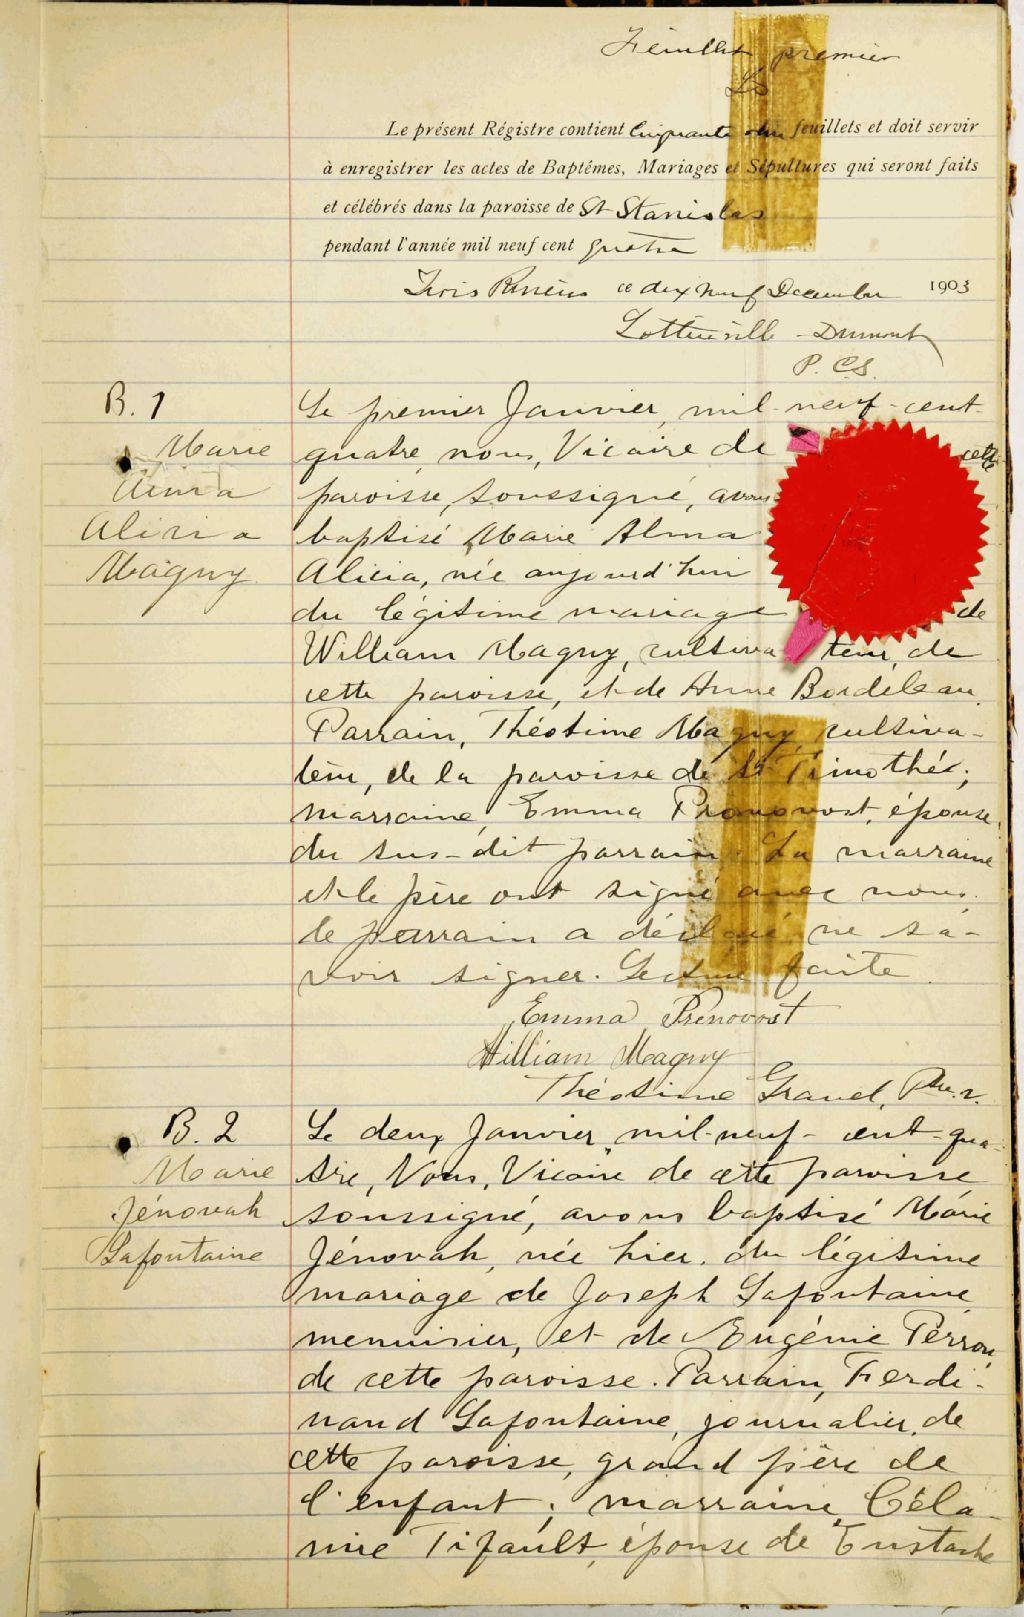 Feuillet premier
Le présent Régistre contient Cinquante feuillets et doit servir
à enregistrer les actes de Baptêmes, Mariages et Sépultures qui seront faits
et célébrés dans la paroisse de St Stanislas
pendant l'année mil neuf cent quatre
Trois Rivières ce dix neuf Décembre 1903
Lottinville - Dumont
P. C.S.
B. 1
Marie
Alma
Alicia
Magny
Le premier Janvier, mil-neuf-cent-
quatre, nous, Vicaire de cette
paroisse, soussigné, avons
baptisé Marie Alma
Alicia, née aujourd'hui
du légitime mariage de
William Magny, cultivateur, de
cette paroisse, et de Anne Bordeleau.
Parrain, Théotime Magny, cultiva-
teur, de la paroisse de St Timothée;
marraine, Emma Pronovost, épouse
du sus-dit parrain. La marraine
et le père ont signé avec nous.
le parrain a déclaré ne sa-
voir signer. Lecture faite
Emma Prénovost
William Magny
Théotime Gravel, Ptre. V.
B. 2
Marie
Jénovah
Lafontaine
Le deux Janvier, mil-neuf-cent-qua-
tre, Nous, Vicaire de cette paroisse
soussigné, avons baptisé Marie
Jénovah, née hier, du légitime
mariage de Joseph Lafontaine,
menuisier, et de Eugénie Perron,
de cette paroisse. Parrain, Ferdi-
nand Lafontaine, journalier, de
cette paroisse, grand père de
l'enfant; marraine, Céla-
nire Tifault, épouse de Eustache